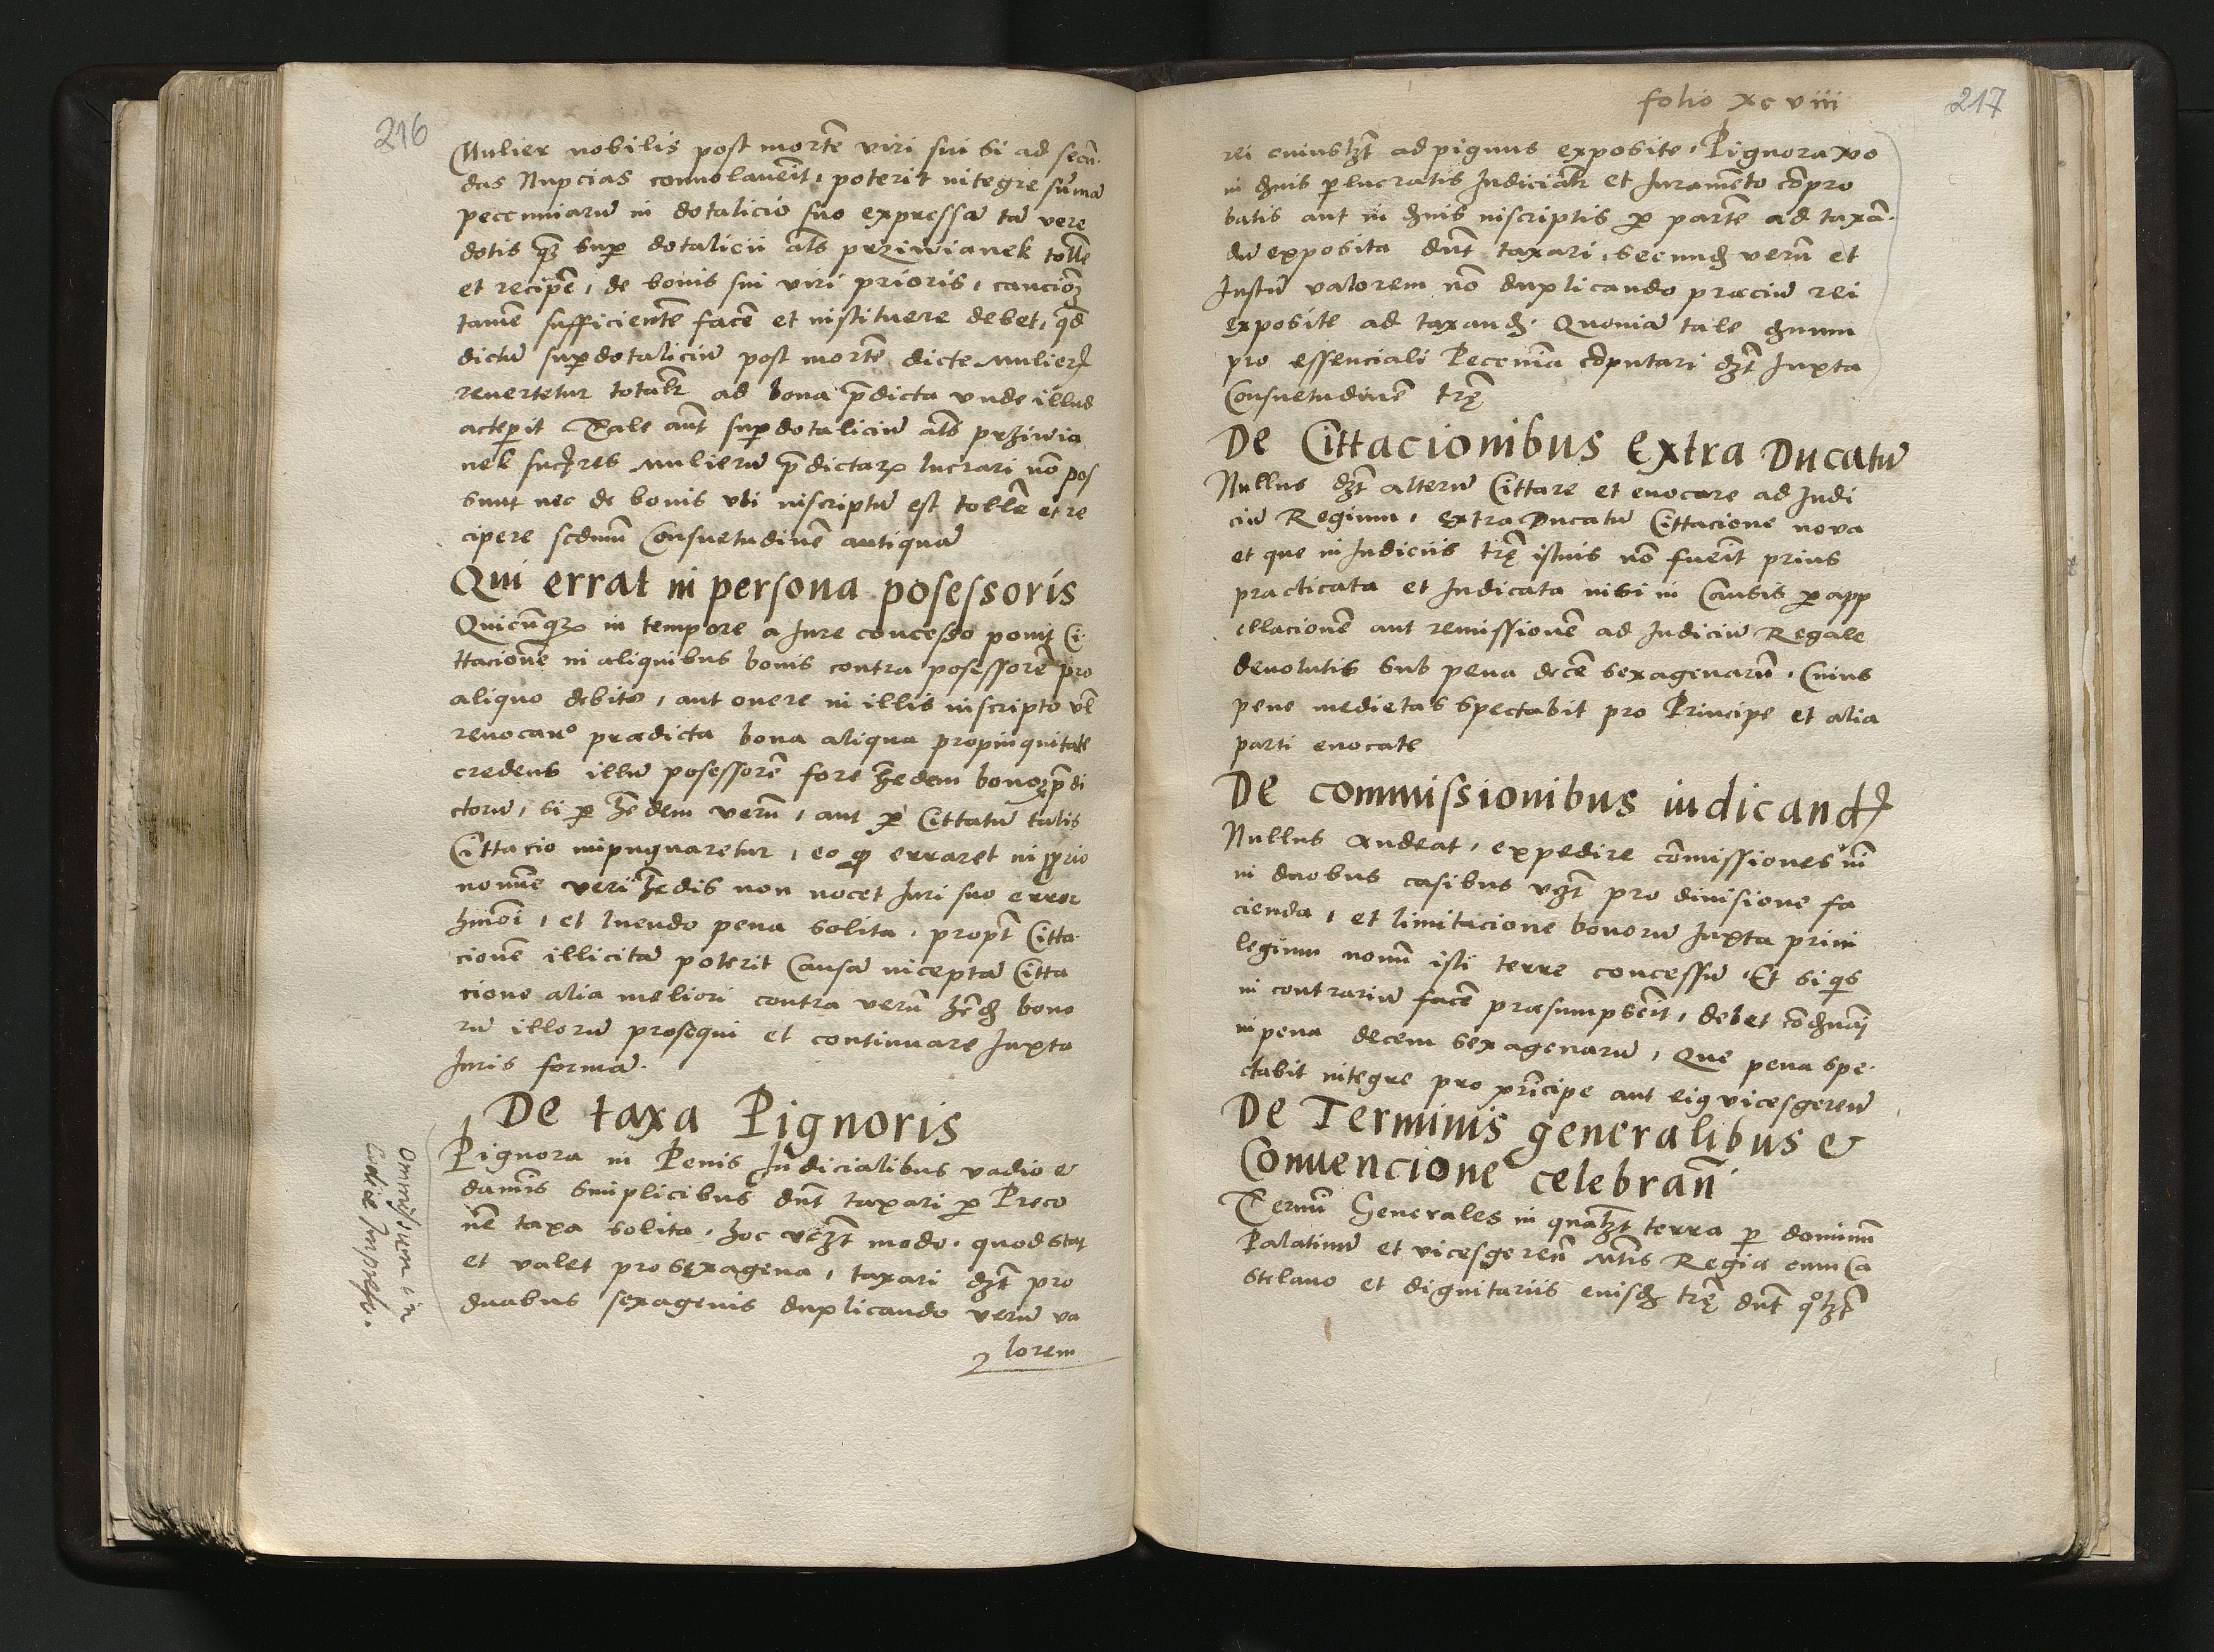 216
Mulier nobilis post mortē viri sui si ad secū-
das Nupcias convolaverīt, poterit integre sūmā
pecenniarū in dotalicio suo expressā tā vere
dotis q̃ sup̱ dotalicii als prziwianek tollē
et recipē, de bonis sui viri prioris, cancionē
tamē sufficientē facē et instituere debet, qd̄
dictū sup̱dotaliciū post mortē dicte mulieris
revertetur totalr ad bona p̄dicta unde illud
acceperit Tale aūt sup̱dotaliciū als prziwia
nek successores mulierū p̄dictarꝝ lucrari nō pos
sunt nec de bonis ubi inscriptū est tollē et re
cipere scdmū Consuetudinē antiquā
Qui errat in persona posessoris
Quicūqꝫ in tempore a Jure concesso ponit Ci-
ttacionē in aliquibus bonis contra posessorē pro
aliquo debito, aut onere in illis inscripto vl
revocan° prædicta bona aliqua propinquitate
credens illū posessorē fore hēdem bonoꝝ p̄di
ctorū, si ꝑ hēdem verū, aut ꝑ Cittatū talis
Cittacio impugnaretur, eo ꝙ erraret in ꝓprio
nomīe veri hēdis non nocet Juri suo error
hmōi, et luendo pena solita, propt̄ Citta-
cionē illicitā poterit Causā inceptā Citta
cione alia meliori contra verū hēdē bono
rū illorū prosequi et continuare Juxta
Juris formā.
De taxa Pignoris
Pignora in Penis Judicialibus vadio &
damīs simplicibus dn̄t taxari ꝑ Preco
nē taxa solita, hoc vꝫt modo, quod stat
et valet pro sexagena, taxari dꝫt pro
duabus sexagenis duplicando verū va
lorem
Ommissum in
Codice Impresso.
folio xc viii
217
rei cuiuslꝫt ad pignus exposite, Pignora vo
in dnis ꝑlucratis Judicialr et Juramento cōpro
batis aut in dnis inscriptis ꝑ partē ad taxā-
dū exposita dn̄t taxari, secundū verū et
Justū valorem nō duplicando præciū rei
exposite ad taxandū. Quoniā tale dnum
pro essenciali Pecenia cōputari dꝫt Juxta
Consuetudinē trē
De Cittacionibus Extra Ducatū
Nullus dꝫt alterū Cittare et evocare ad Judi
ciū Regium, extra Ducatū Cittacione nova
et que in Judiciis trē istius nō fuerīt prius
practicata et Judicata nisi in Causis ꝑ app
ellacionē aut remissionē ad Judiciū Regale
devolutis sub pena decē sexagenarū, Cuius
pene medietas spectabit pro Principe et alia
parti evocate
De commissionibus iudicandis
Nullus Audeat, expedire cōmissiones nī
in duobus casibus vꝫt pro divisione fa
cienda, et limitacione bonorū Juxta privi
legium novū isti terre concessū. Et si qs
in contrariū facē præsumpserīt, debet cōdēnari
in pena decem sexagenarū, Que pena spe-
ctabit integre pro pr̄incipe aut eiꝰ vicesgereū
De Terminis generalibus &
Convencione celebran̄
Termī Generales in qualꝫt terra ꝑ dominū
Palatinū et vicesgereū Mtis Regiæ cum Ca
stelano et dignitariis eiusdē trē dn̄t qolꝫt